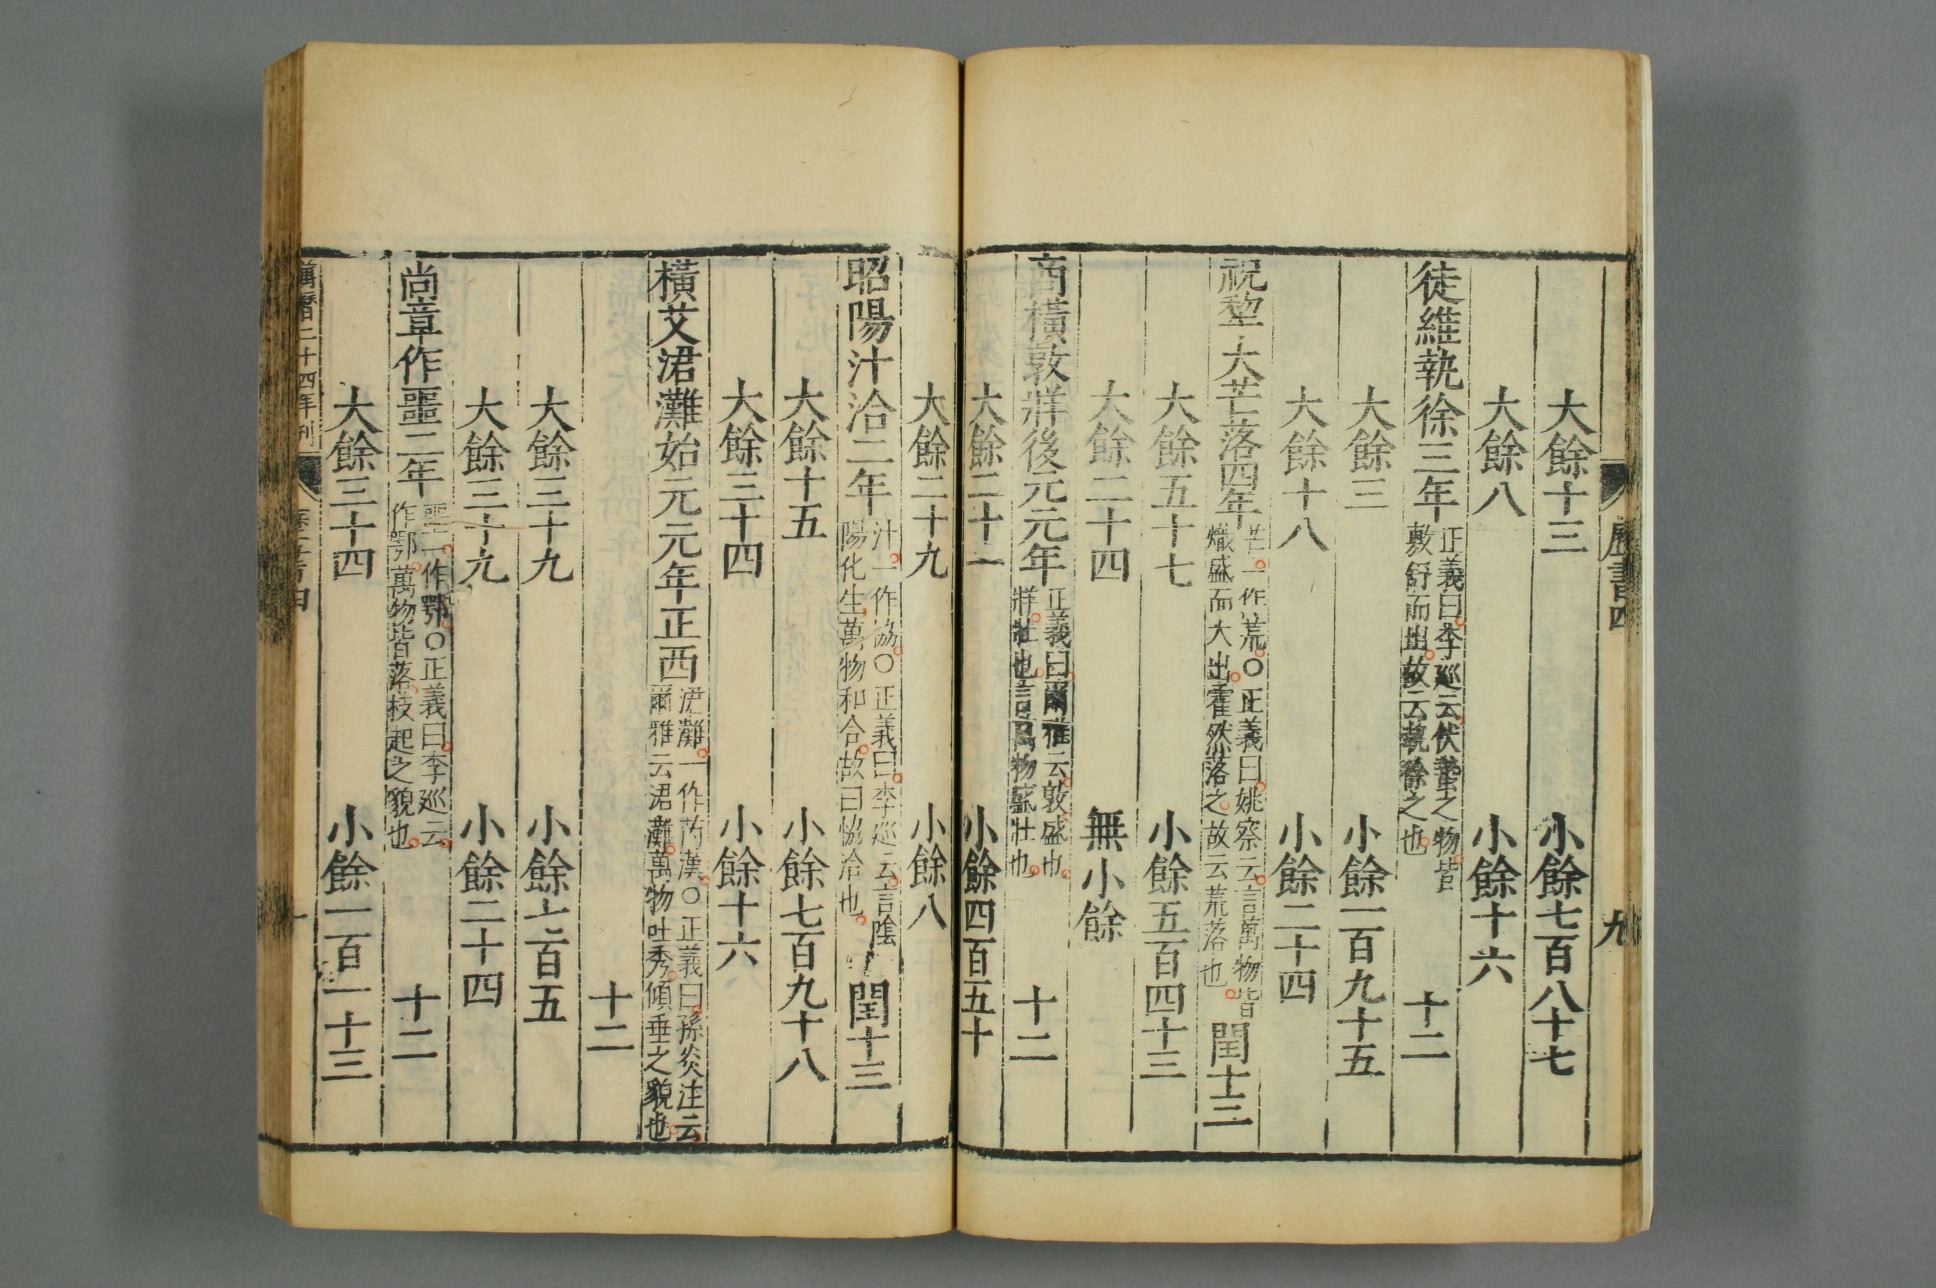 曆書四
九
大餘十三 小餘七百八十七
大餘八 小餘十六
徒維執徐三年 正義曰李廵云伏蟄之物皆敷舒而出故云執徐之也 十二
大餘三 小餘一百九十五
大餘十八 小餘二十四
祝犂大芒落四年 芒一作荒○正義曰姚察云言萬物皆熾盛而大出霍然落之故云荒落也 閏十三
大餘五十七 小餘五百四十三
大餘二十四 無小餘
商橫敦牂後元元年 正義曰爾雅云敦盛也牂壯也言萬物盛壯也 十二
大餘二十一 小餘四百五十
大餘二十九 小餘八
昭陽汁洽二年 汁一作協○正義曰李廵云言陰陽化生萬物和合故曰恊洽也 閏十三
大餘十五 小餘七百九十八
大餘三十四 小餘十六
橫艾涒灘始元元年正西 涒灘一作芮漢○正義曰孫炎注云爾雅云涒灘萬物吐秀傾垂之貌也
十二
大餘三十九 小餘七百五
大餘三十九 小餘二十四
尚章作噩二年 噩一作鄂○正義曰李廵云作鄂萬物皆落枝起之貌也 十二
大餘三十四 小餘一百一十三
萬曆二十四年刊